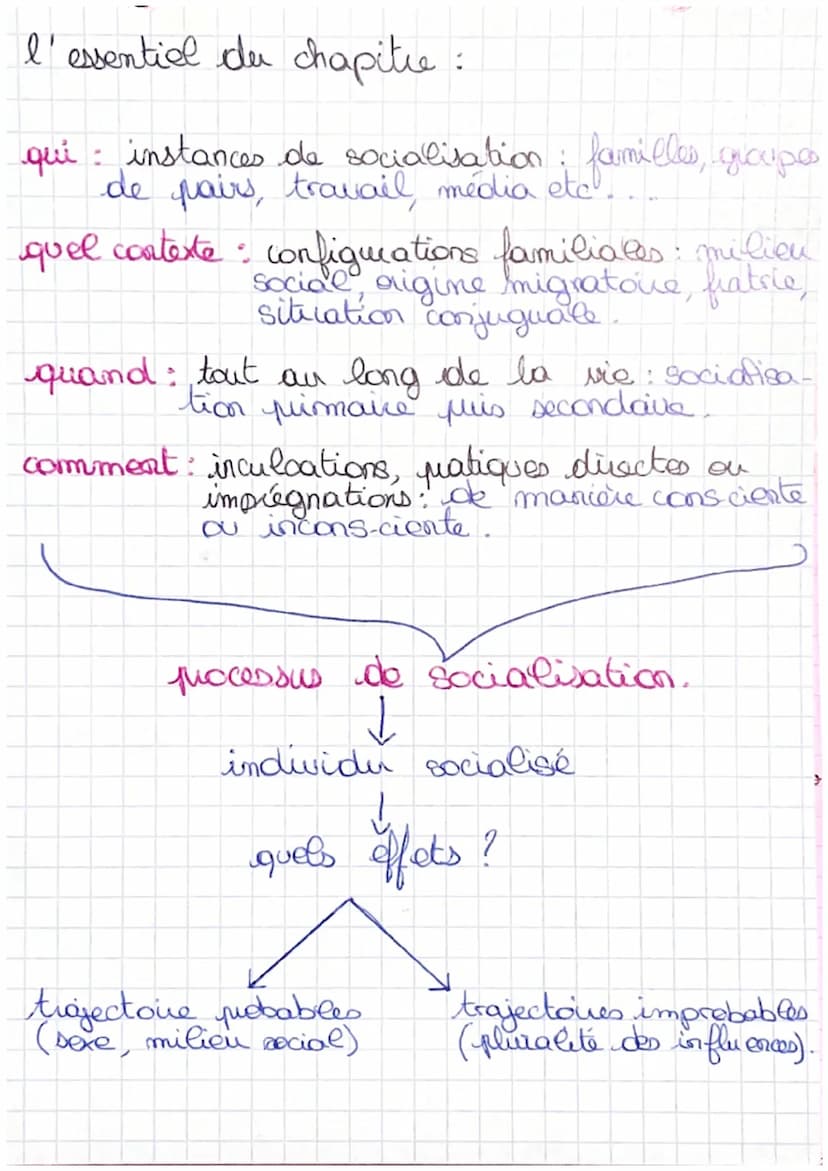 l'essentiel du chapitre :
qui : instances de socialisation : familles, groupes
de pairs, travail, média etc....
quel contexte : configurations familiales : milieu
social, origine migratoire, fratrie,
situation conjuguale.
quand : tout au long de la vie : socialisa-
tion primaire puis secondaire.
comment : inculcations, pratiques directes ou
imprégnations : de manière consciente
ou incons-ciente.
processus de socialisation.
individu socialisé
quels effets ?
trajectoire probables
(sexe, milieu social)
trajectoires improbables
(pluralité des influences).